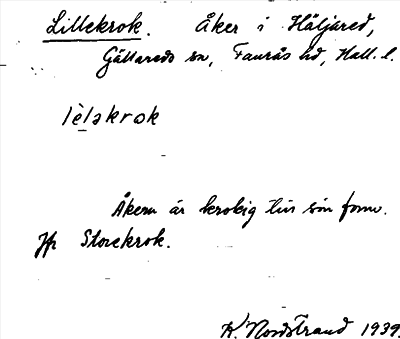 Lillekrok. Åker i Häljared,
Gällareds sn, Faurås hd, Hall. l.
lèləkrok
Åkern är krokig till sin form.
Jfr Storekrok.
K. Nordstrand 1939.